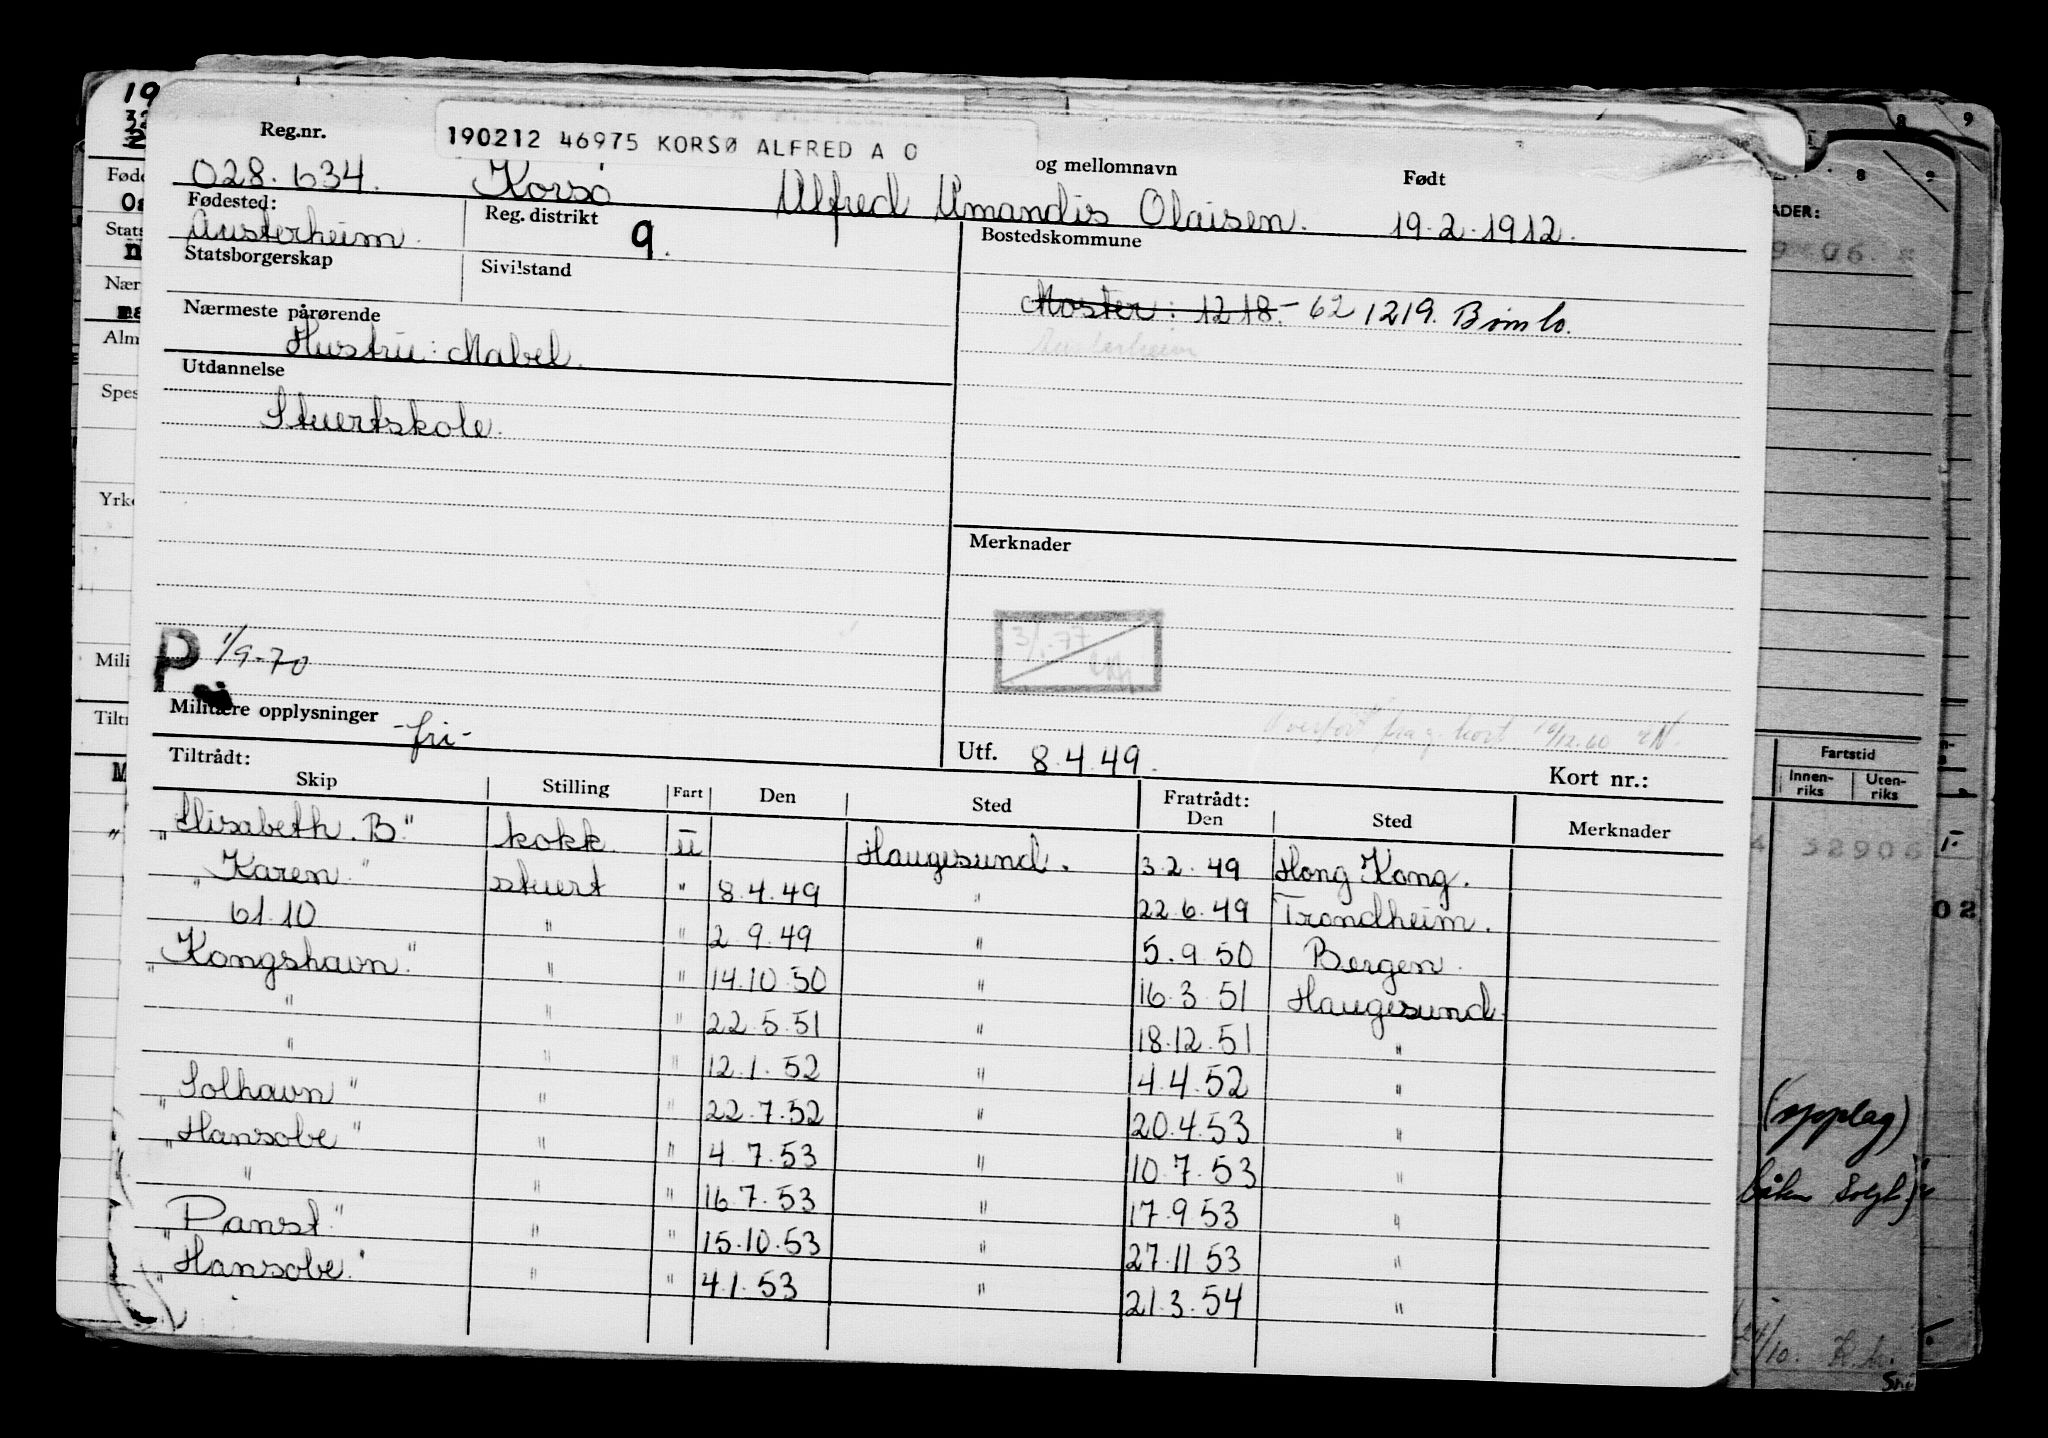 190212 46975 KORSØ ALFRED A O
Reg.nr. og mellomnavn Født
028.634. Korsø Alfred Amandis Olaisen. 19.2.1912.
Fødested: Reg. distrikt Bostedskommune
Austerheim. 9.
Statsborgerskap Sivilstand
Moster: 1218.- 62 1219. Bømlo.
Nærmeste pårørende
Austerheim
Hustru: Mabel.
Utdannelse
Stuertskole.
Merknader
P 1/9-70
3/.-77
Militære opplysninger -fri-
Overført fra g. kort
Utf. 8.4.49. Kort nr.:
Tiltrådt: Fratrådt:
Skip Stilling Fart Den Sted Den Sted Merknader
"Elisabeth. B." kokk. u Haugesund. 3.2.49 Hong Kong.
"Karen" stuert " 8.4.49 " 22.6.49 Trondheim.
61.10 " " 2.9.49 " 5.9.50 Bergen.
"Kongshavn." " " 14.10.50 " 16.3.51 Haugesund.
" " " 22.5.51 " 18.12.51 "
" " " 12.1.52 " 4.4.52 "
"Solhavn" " " 22.7.52 " 20.4.53 "
"Hansobe" " " 4.7.53 " 10.7.53 "
" " " 16.7.53 " 17.9.53 "
"Panst." " " 15.10.53 " 27.11.53 "
"Hansobe." " " 4.1.53 " 21.3.54 "
19
Føde
Stats
Nær
Alm
Spes
Yrke
Mili
Tiltr
8 9
8
ADER:
Fartstid
Innen-
riks
Uten-
riks
32906
02
(opplag)
24/10.